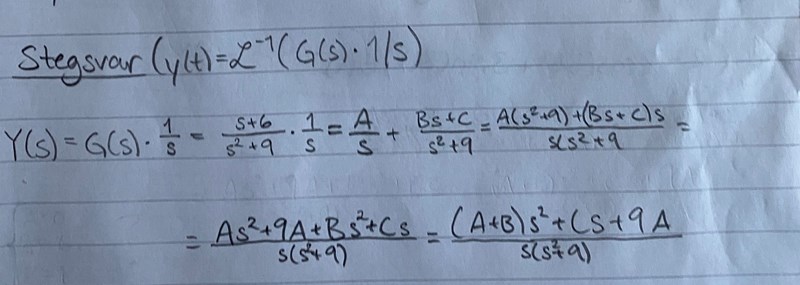 Stegsvar (y(t)=ℒ⁻¹(G(s)·1/s)
Y(s) = G(s)·1/s = (s+6)/(s²+9) · 1/s = A/s + (Bs+C)/(s²+9) = (A(s²+9)+(Bs+C)s)/(s(s²+9) =
= (As²+9A+Bs²+Cs)/(s(s²+9)) = ((A+B)s²+Cs+9A)/(s(s²+9))